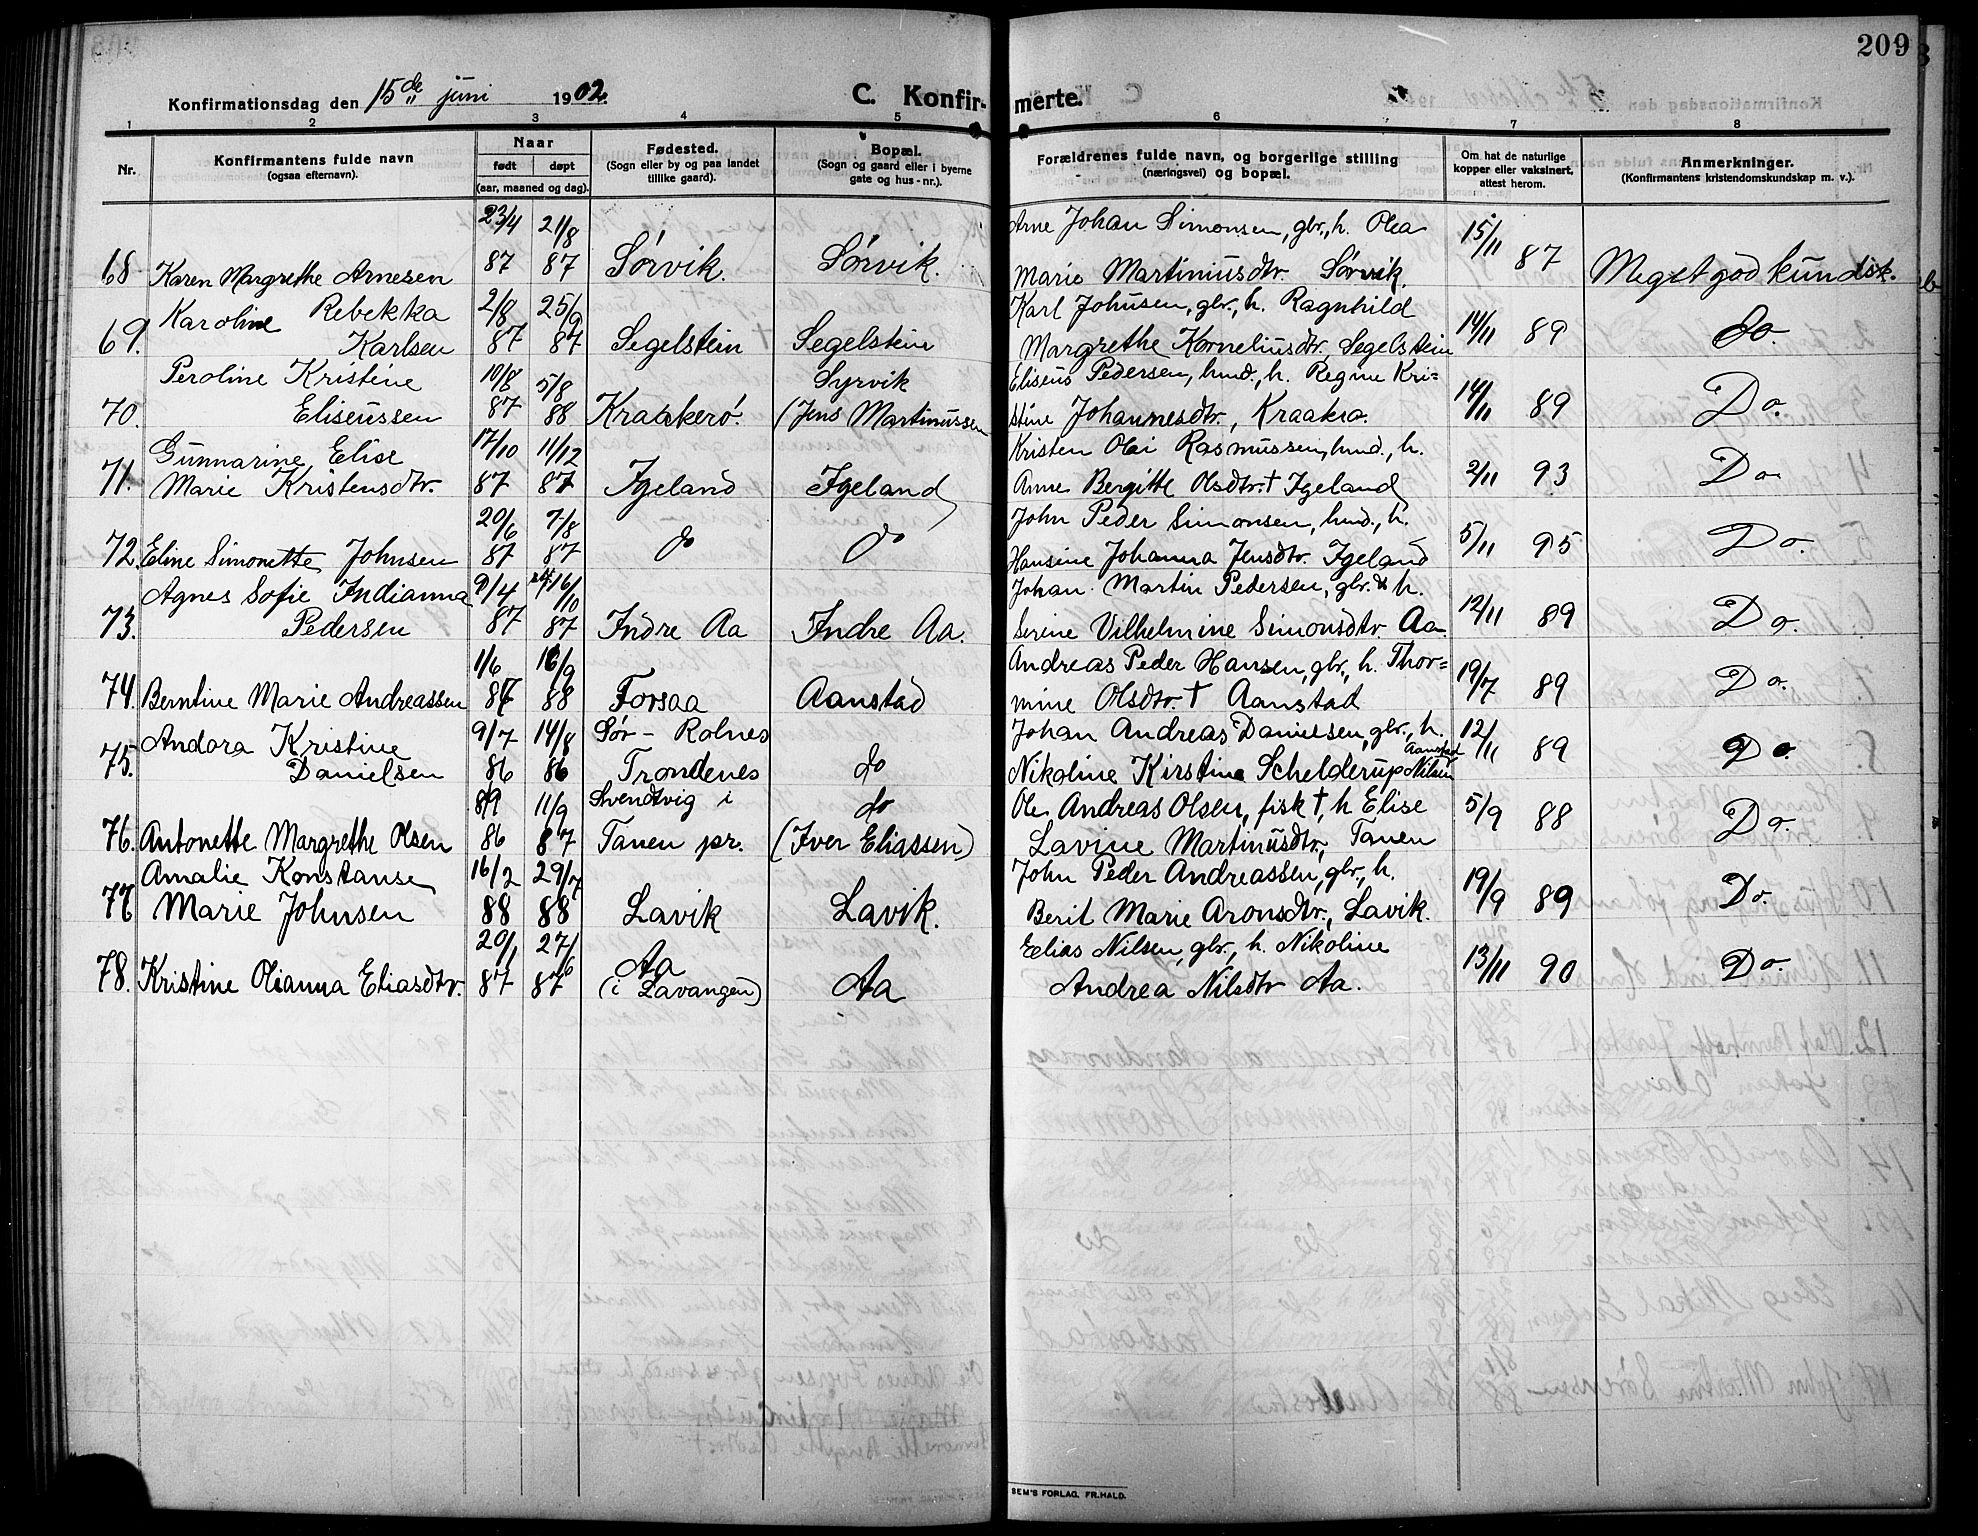 209
Konfirmationsdag den 15de juni 1902. C. Konfir- merte.
1 2 3 4 5 6 7 8
Nr.
Konfirmantens fulde navn
(ogsaa efternavn).
Naar
født døpt
(aar, maaned og dag).
Fødested.
(Sogn eller by og paa landet
tillike gaard).
Bopæl.
(Sogn og gaard eller i byerne
gate og hus-nr.).
Forældrenes fulde navn, og borgerlige stilling
(næringsvei) og bopæl.
Om hat de naturlige
kopper eller vaksinert,
attest herom.
Anmerkninger.
(Konfirmantens kristendomskundskap m. v.).
23/4 21/8 Arne Johan Simonsen, gbr., h. Olea 15/11
68 Karen Margrethe Arnesen 87 87 Sørvik. Sørvik. Marie Martiniusdtr. Sørvik. 87 Meget god kundsk.
Karoline Rebekka 2/8 25/9 Karl Johnsen, gbr., h. Ragnhild
69. Karlsen 87 87 Segelstein Segelstein Margrethe Korneliusdtr. Segelstein 14/11 89 do.
Peroline Kristine 10/8 5/8 Syrvik Eliseus Pedersen, hmd., h. Regine Kri=
70. Eliseussen 87 88 Kraakerø. (Jens Martinussen stine Johannesdtr., Kraakrø. 14/11 89 Do.
Gunnarine Elise 17/10 11/12 Kristen Olai Rasmussen, hmd., h.
71. Marie Kristensdtr. 87 87 Igeland Igeland Anne Bergitte Olsdtr. † Igeland 2/11 93 Do
20/6 7/8 John Peder Simonsen, hmd., h.
72. Eline Simonette Johnsen 87 87 do do Hansine Johanna Jensdtr. Igeland 5/11 95 Do.
Agnes Sofie Indianna 9/4 16/10 Johan Martin Pedersen, gbr. & h.
73. Pedersen 87 87 Indre Aa Indre Aa. Serine Vilhelmine Simonsdtr Aa. 12/11 89 Do.
1/6 16/9 Andreas Peder Hansen, gbr., h. Thor=
74. Berntine Marie Andreassen 87 88 Forsaa Aanstad mine Olsdtr. † Aanstad 19/7 89 Do.
Andora Kristine 9/7 14/8 Sør-Rolnes Johan Andreas Danielsen, gbr., h. 12/11
75. Danielsen 86 86 Trondenes do Nikoline Kirstine Schelderup Nilsen Aanstad 89 Do.
8/9 11/9 Svendtvig i do Ole Andreas Olsen, fisk †, h Elise 5/9
76. Antonette Margrethe Olsen 86 87 Tanen pr. (Iver Eliassen) Lavine Martinusdtr., Tanen 88 Do.
Amalie Konstanse 16/2 29/7 John Peder Andreassen, gbr., h.
77 Marie Johnsen 88 88 Lavik Lavik. Berit Marie Aronsdtr., Lavik. 19/9 89 Do.
20/1 27/6 Aa Elias Nilsen, gbr., h. Nikoline
78. Kristine Olianna Eliasdtr. 87 87 (i Lavangen) Aa Andrea Nilsdtr Aa. 13/11 90 Do.
SEM'S FORLAG, FR.HALD.